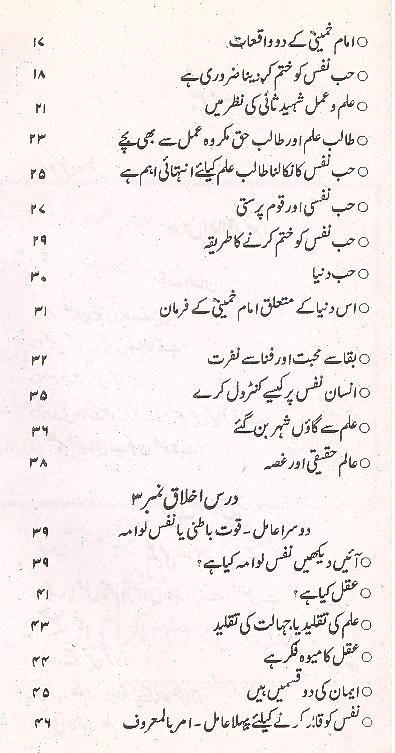 ○ امام خمینیؒ کے دو واقعات ۱۷
○ حب نفس کو ختم کر دینا ضروری ہے ۱۸
○ علم و عمل شہید ثانیؒ کی نظر میں ۲۱
○ طالب علم اور طالب حق مکروہ عمل سے بھی بچے ۲۳
○ حب نفس کا نکالنا طالب علم کیلئے انتہائی اہم ہے ۲۵
○ حب نفسی اور قوم پرستی ۲۷
○ حب نفس کو ختم کرنے کا طریقہ ۲۹
○ حب دنیا ۳۰
○ اس دنیا کے متعلق امام خمینیؒ کے فرمان ۳۱
○ بقا سے محبت اور فنا سے نفرت ۳۲
○ انسان نفس پر کیسے کنٹرول کرے ۳۵
○ علم سے گاؤں شہر بن گئے ۳۶
○ عالم حقیقی اور غصہ ۳۸
درس اخلاق نمبر ۳
دوسرا عامل - قوت باطنی یا نفس لوامہ ۳۹
○ آئیں دیکھیں نفس لوامہ کیا ہے؟ ۳۹
○ عقل کیا ہے؟ ۴۱
○ علم کی تقلید یا جہالت کی تقلید ۴۳
○ عقل کا میوہ فکر ہے ۴۴
○ ایمان کی دو قسمیں ہیں ۴۵
○ نفس کو قابو کرنے کیلئے پہلا عامل - امر بالمعروف ۴۶